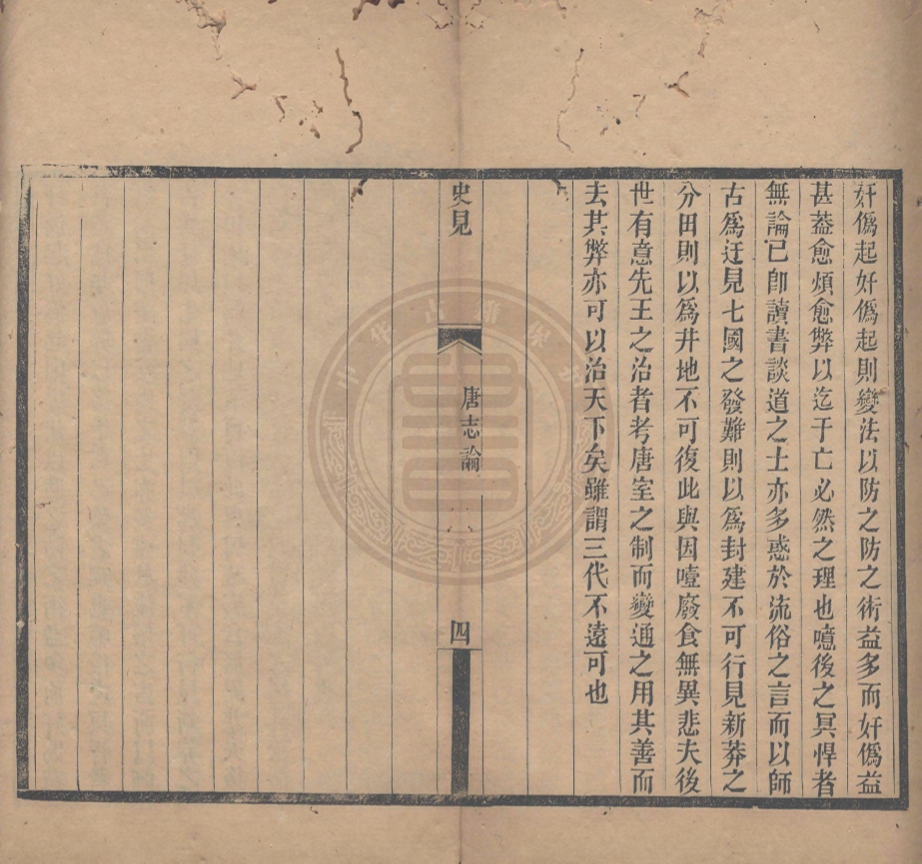 奸僞起奸僞起則變法以防之防之術益多而奸僞益
甚葢愈煩愈弊以迄于亡必然之理也噫後之冥悍者
無論已卽讀書談道之士亦多惑於流俗之言而以師
古爲迂見七國之發難則以爲封建不可行見新莽之
分田則以爲井地不可復此與因噎廢食無異悲夫後
世有意先王之治者考唐室之制而變通之用其善而
去其弊亦可以治天下矣雖謂三代不遠可也
史見
唐志論
四